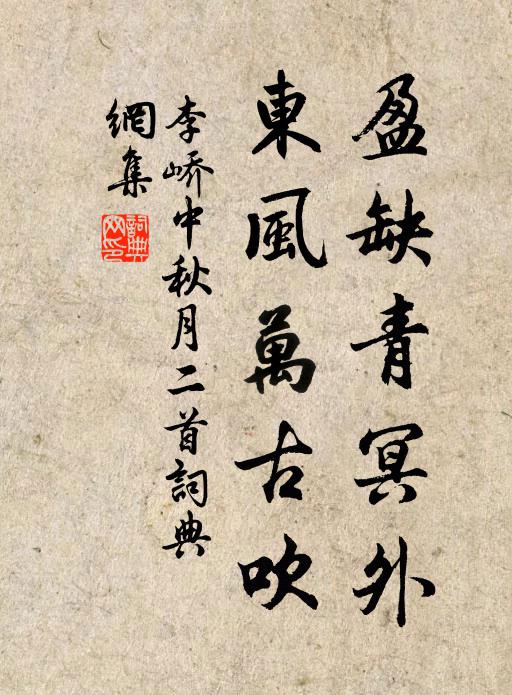 盈缺青冥外
東風萬古吹
李嶠中秋月二首詞典
網集
詞典
网印